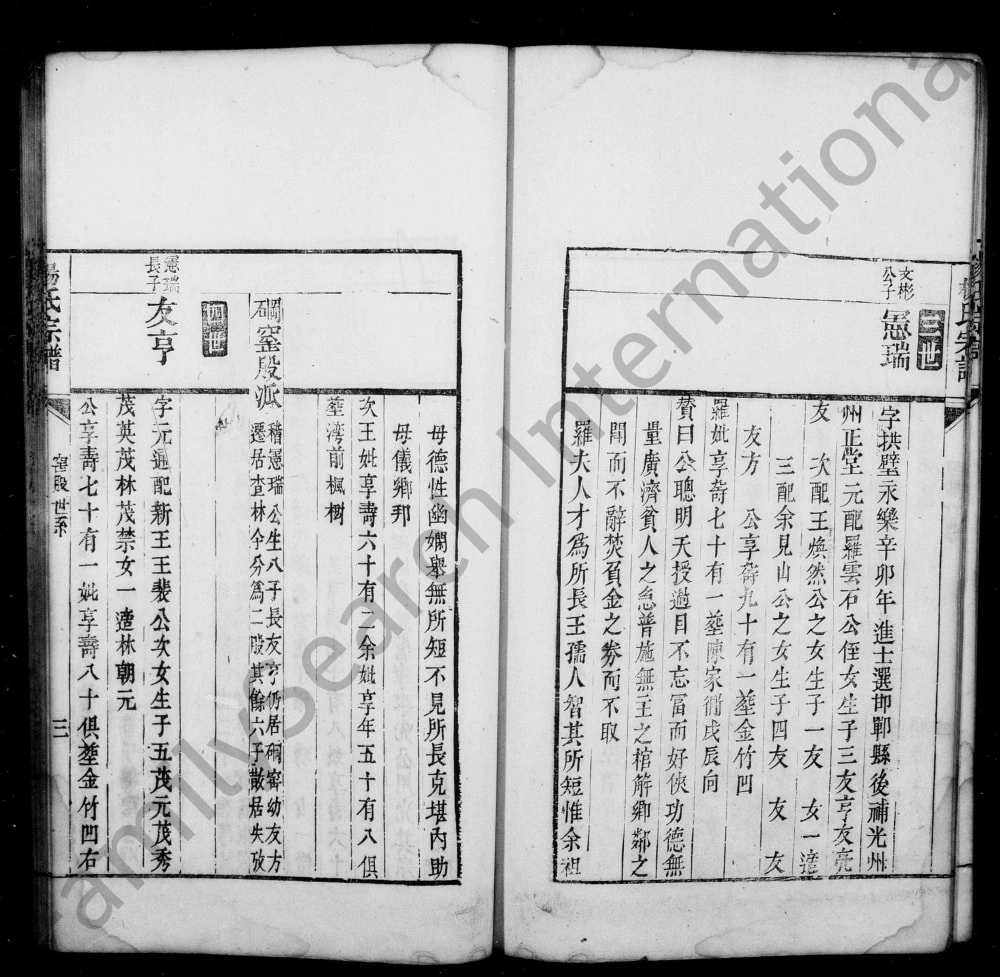 楊氏宗譜
三世
文彬
公子
憲瑞
字拱璧永樂辛卯年進士選邯鄲縣後補光州
州正堂元配羅雲石公侄女生子三友亨友亮
友 次配王煥然公之女生子一友 女一適
三配余見山公之女生子四友 友 友
友方 公享壽九十有一塟金竹凹
羅妣享壽七十有一塟陳家衕戌辰向
賛曰公聰明天授過目不忘冨而好俠功德無
量廣濟貧人之急普施無主之棺解鄉鄰之
鬩而不辭焚負金之劵而不取
羅夫人才為所長王孺人智其所短惟余祖
母德性幽嫻舉無所短不見所長克堪內助
母儀鄉邦
次王妣享壽六十有二余妣享年五十有八俱
塟湾前楓樹
磵窰殷派
稽憲瑞公生八子長友亨仍居磵窰幼友方
遷居查林今分爲二股其餘六子散居失攷
四世
憲瑞
長子
友亨
字元遍配新王王裴公次女生子五茂元茂秀
茂英茂林茂禁女一適林朝元
公享壽七十有一妣享壽八十俱塟金竹凹右
楊氏宗譜
窰段 世系
三
FamilySearch International